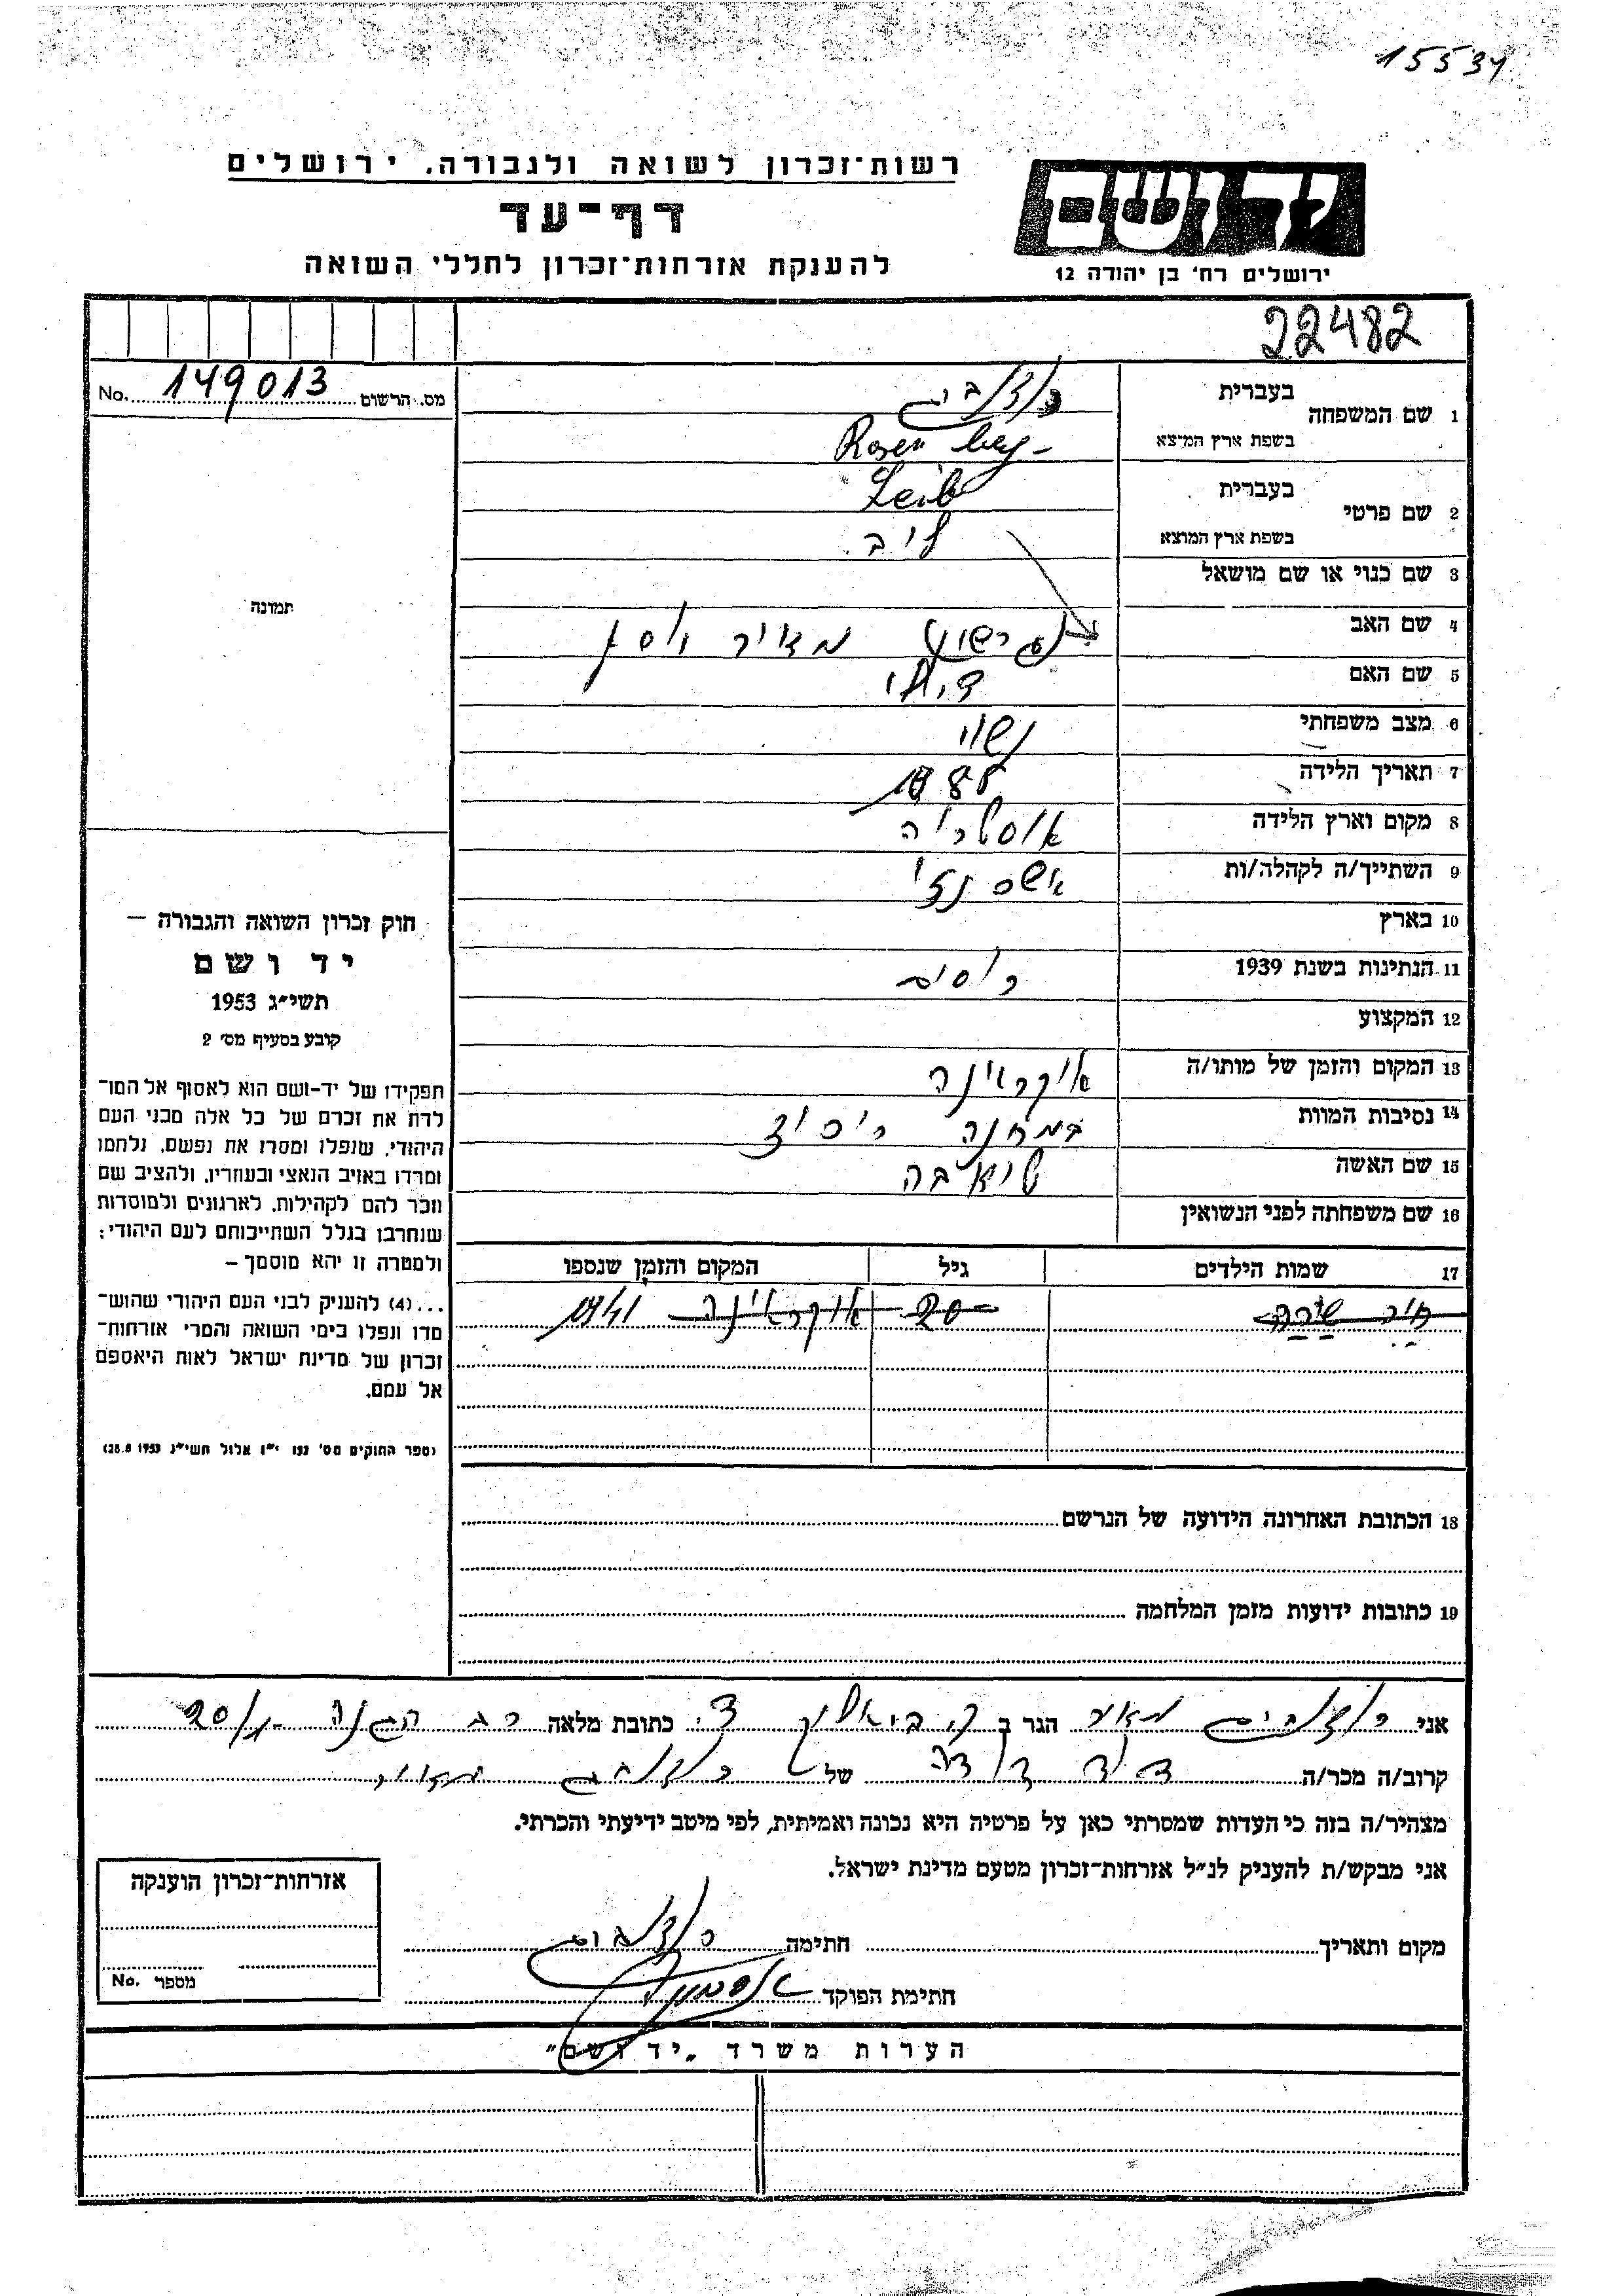 15534
רשות־זכרון לשואה ולגבורה, ירושלים
דף־עד
להענקת אזרחות־זכרון לחללי השואה
ירושלים רח' בן יהודה 12
22482
מס. הרשום 149013 No.
1 שם המשפחה
בעברית
בשפת ארץ המוצא Rosen
2 שם פרטי
בעברית Leib
בשפת ארץ המוצא ליב
3 שם כנוי או שם מושאל
4 שם האב
5 שם האם
6 מצב משפחתי נשוי
7 תאריך הלידה 1888
8 מקום וארץ הלידה אוסטריה
9 השתייך/ה לקהלה/ות אשכנזי
10 בארץ
11 הנתינות בשנת 1939
12 המקצוע
13 המקום והזמן של מותו/ה אוקראינה
14 נסיבות המוות במחנה
15 שם האשה
16 שם משפחתה לפני הנשואין
17 שמות הילדים גיל המקום והזמן שנספו
20 אוקראינה 1941
18 הכתובת האחרונה הידועה של הנרשם
19 כתובות ידועות מזמן המלחמה
תמונה
חוק זכרון השואה והגבורה —
יד ושם
תשי״ג 1953
קובע בסעיף מס' 2
תפקידו של יד־ושם הוא לאסוף אל המו־
לדת את זכרם של כל אלה מבני העם
היהודי, שנפלו ומסרו את נפשם, נלחמו
ומרדו באויב הנאצי ובעוזריו, ולהציב שם
וזכר להם לקהילות, לארגונים ולמוסדות
שנחרבו בגלל השתייכותם לעם היהודי;
ולמטרה זו יהא מוסמך —
...(4) להעניק לבני העם היהודי שהוש־
מדו ונפלו בימי השואה והמרי אזרחות־
זכרון של מדינת ישראל לאות היאספם
אל עמם.
(ספר החוקים מס' 132 י״ז אלול תשי״ג 28.8.1953)
אני הגר ב ק. ביאליק כתובת מלאה רח הגנה
קרוב/ה מכר/ה של
מצהיר/ה בזה כי העדות שמסרתי כאן על פרטיה היא נכונה ואמיתית, לפי מיטב ידיעתי והכרתי.
אני מבקש/ת להעניק לנ״ל אזרחות־זכרון מטעם מדינת ישראל.
מקום ותאריך חתימה
חתימת הפוקד
אזרחות־זכרון הוענקה
מספר No.
הערות משרד „יד ושם״